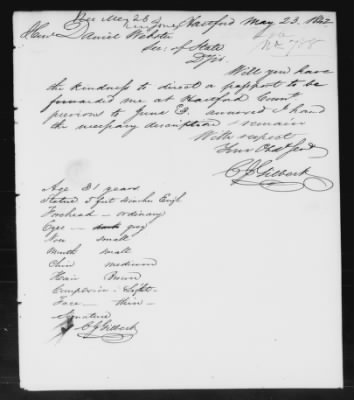 Hartford May 23. 1842
Hon Daniel Webster
Sec: of State
Sir.
Will you have
the kindness to direct a passport to be
forwarded me at Hartford Conn
previous to June 3. annexed I hand
the necessary description & remain
With respect
Your Obdt Servt
C J Gilbert
Age 31 years
Stature 5 feet inches Engl
Forehead — ordinary
Eyes — gray
Nose small
Mouth small
Chin medium
Hair Brown
Complexion - Light-
Face — thin —
Signature
C J Gilbert